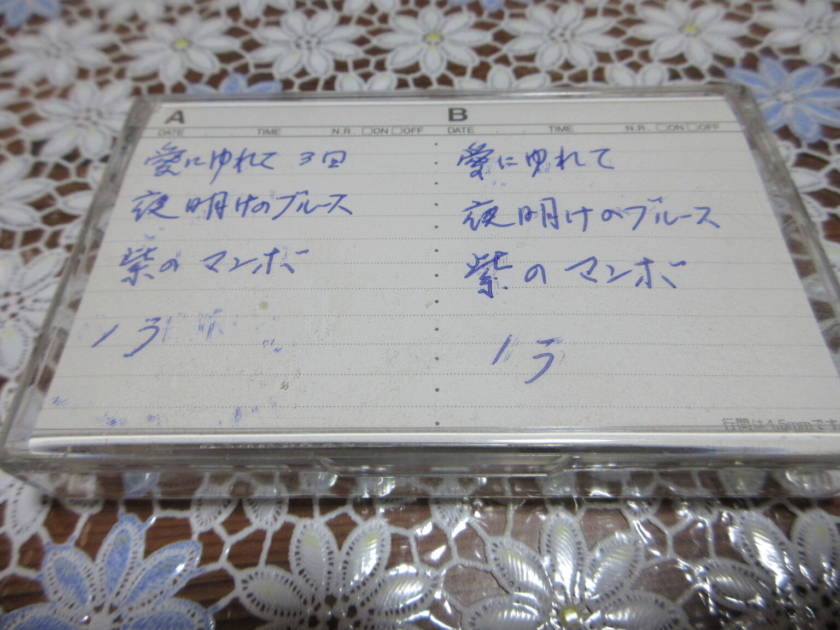 A
DATE TIME N.R. □ON □OFF
愛にゆれて 3回
夜明けのブルース
紫のマンボ
B
DATE TIME N.R. □ON □OFF
愛にゆれて
夜明けのブルース
紫のマンボ
行間は4.5mmです